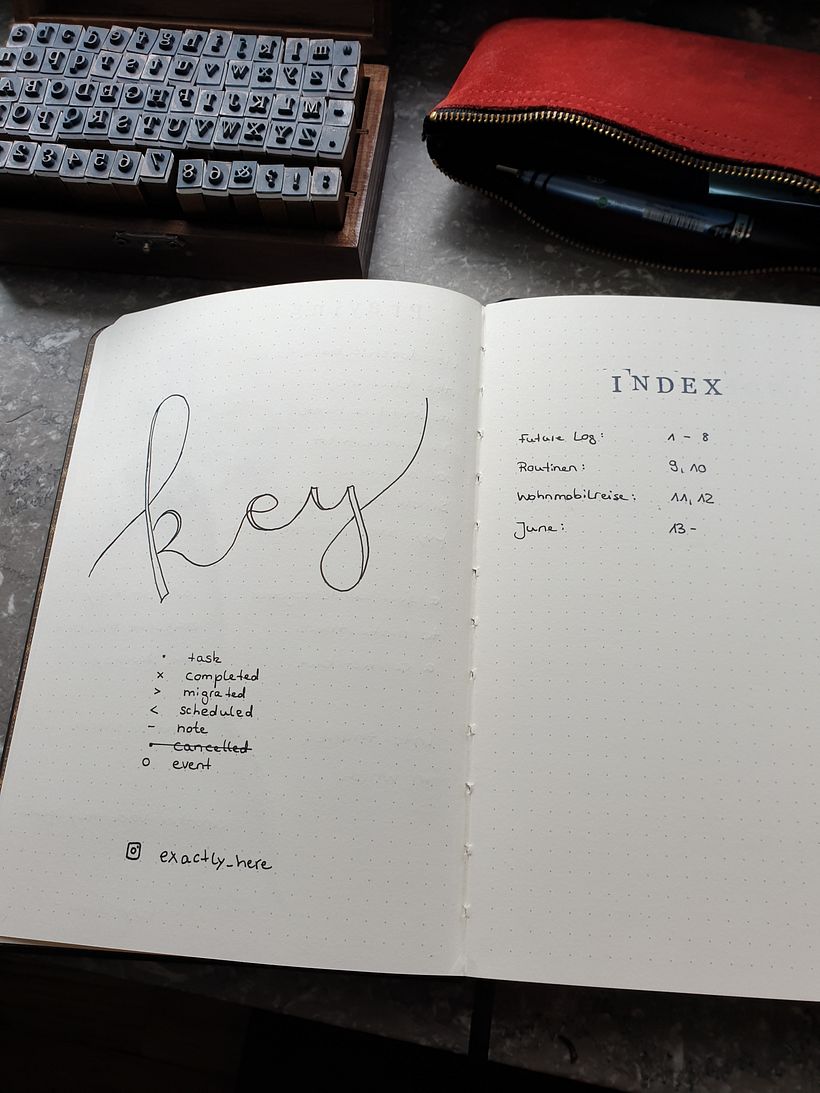 key
• task
x completed
> migrated
< scheduled
– note
• cancelled
o event
exactly_here
INDEX
Future Log: 1 - 8
Routinen: 9, 10
Wohnmobilreise: 11, 12
June: 13 -